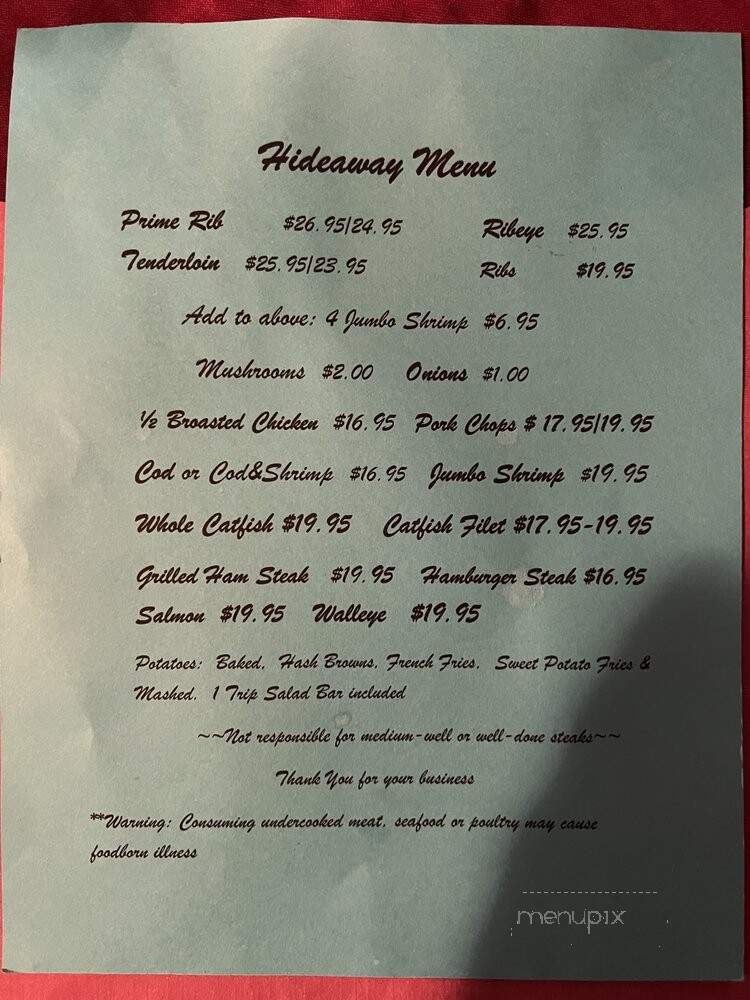 Hideaway Menu
Prime Rib $26.95|24.95 Ribeye $25.95
Tenderloin $25.95|23.95 Ribs $19.95
Add to above: 4 Jumbo Shrimp $6.95
Mushrooms $2.00 Onions $1.00
½ Broasted Chicken $16.95 Pork Chops $ 17.95|19.95
Cod or Cod&Shrimp $16.95 Jumbo Shrimp $19.95
Whole Catfish $19.95 Catfish Filet $17.95-19.95
Grilled Ham Steak $19.95 Hamburger Steak $16.95
Salmon $19.95 Walleye $19.95
Potatoes: Baked, Hash Browns, French Fries, Sweet Potato Fries &
Mashed. 1 Trip Salad Bar included
~~Not responsible for medium-well or well-done steaks~~
Thank You for your business
**Warning: Consuming undercooked meat, seafood or poultry may cause
foodborn illness
menupix